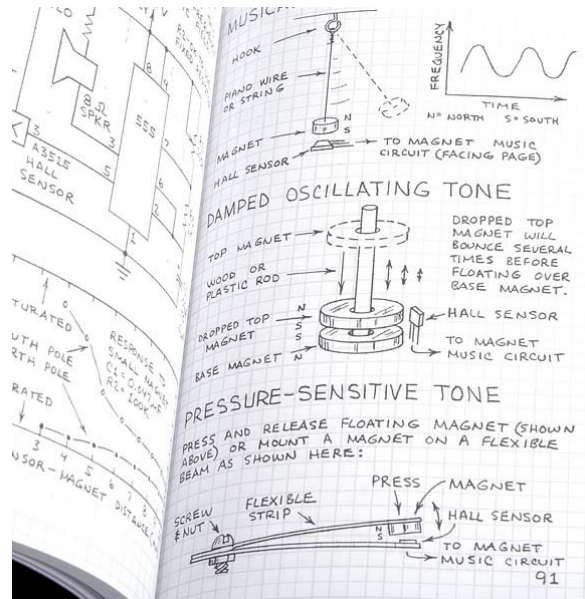 8 Ω
SPKR
555
8
4
3
7
5
6
2
1
3
A3515
HALL
SENSOR
RESPONSE
TO
SMALL MAGNET
C1 = 0.047 µF
R2 = 100K
3
4
5
6
7
8
MUSICAL
HOOK
PIANO WIRE
OR STRING
MAGNET
HALL SENSOR
N
S
TO MAGNET MUSIC
CIRCUIT (FACING PAGE)
FREQUENCY
TIME
N= NORTH S= SOUTH
DAMPED OSCILLATING TONE
TOP MAGNET
WOOD OR
PLASTIC ROD
DROPPED TOP
MAGNET
BASE MAGNET
N
S
S
N
DROPPED TOP
MAGNET WILL
BOUNCE SEVERAL
TIMES BEFORE
FLOATING OVER
BASE MAGNET.
HALL SENSOR
TO MAGNET
MUSIC CIRCUIT
PRESSURE-SENSITIVE TONE
PRESS AND RELEASE FLOATING MAGNET (SHOWN
ABOVE) OR MOUNT A MAGNET ON A FLEXIBLE
BEAM AS SHOWN HERE:
SCREW
& NUT
FLEXIBLE
STRIP
PRESS
MAGNET
N
S
HALL SENSOR
TO MAGNET
MUSIC CIRCUIT
91